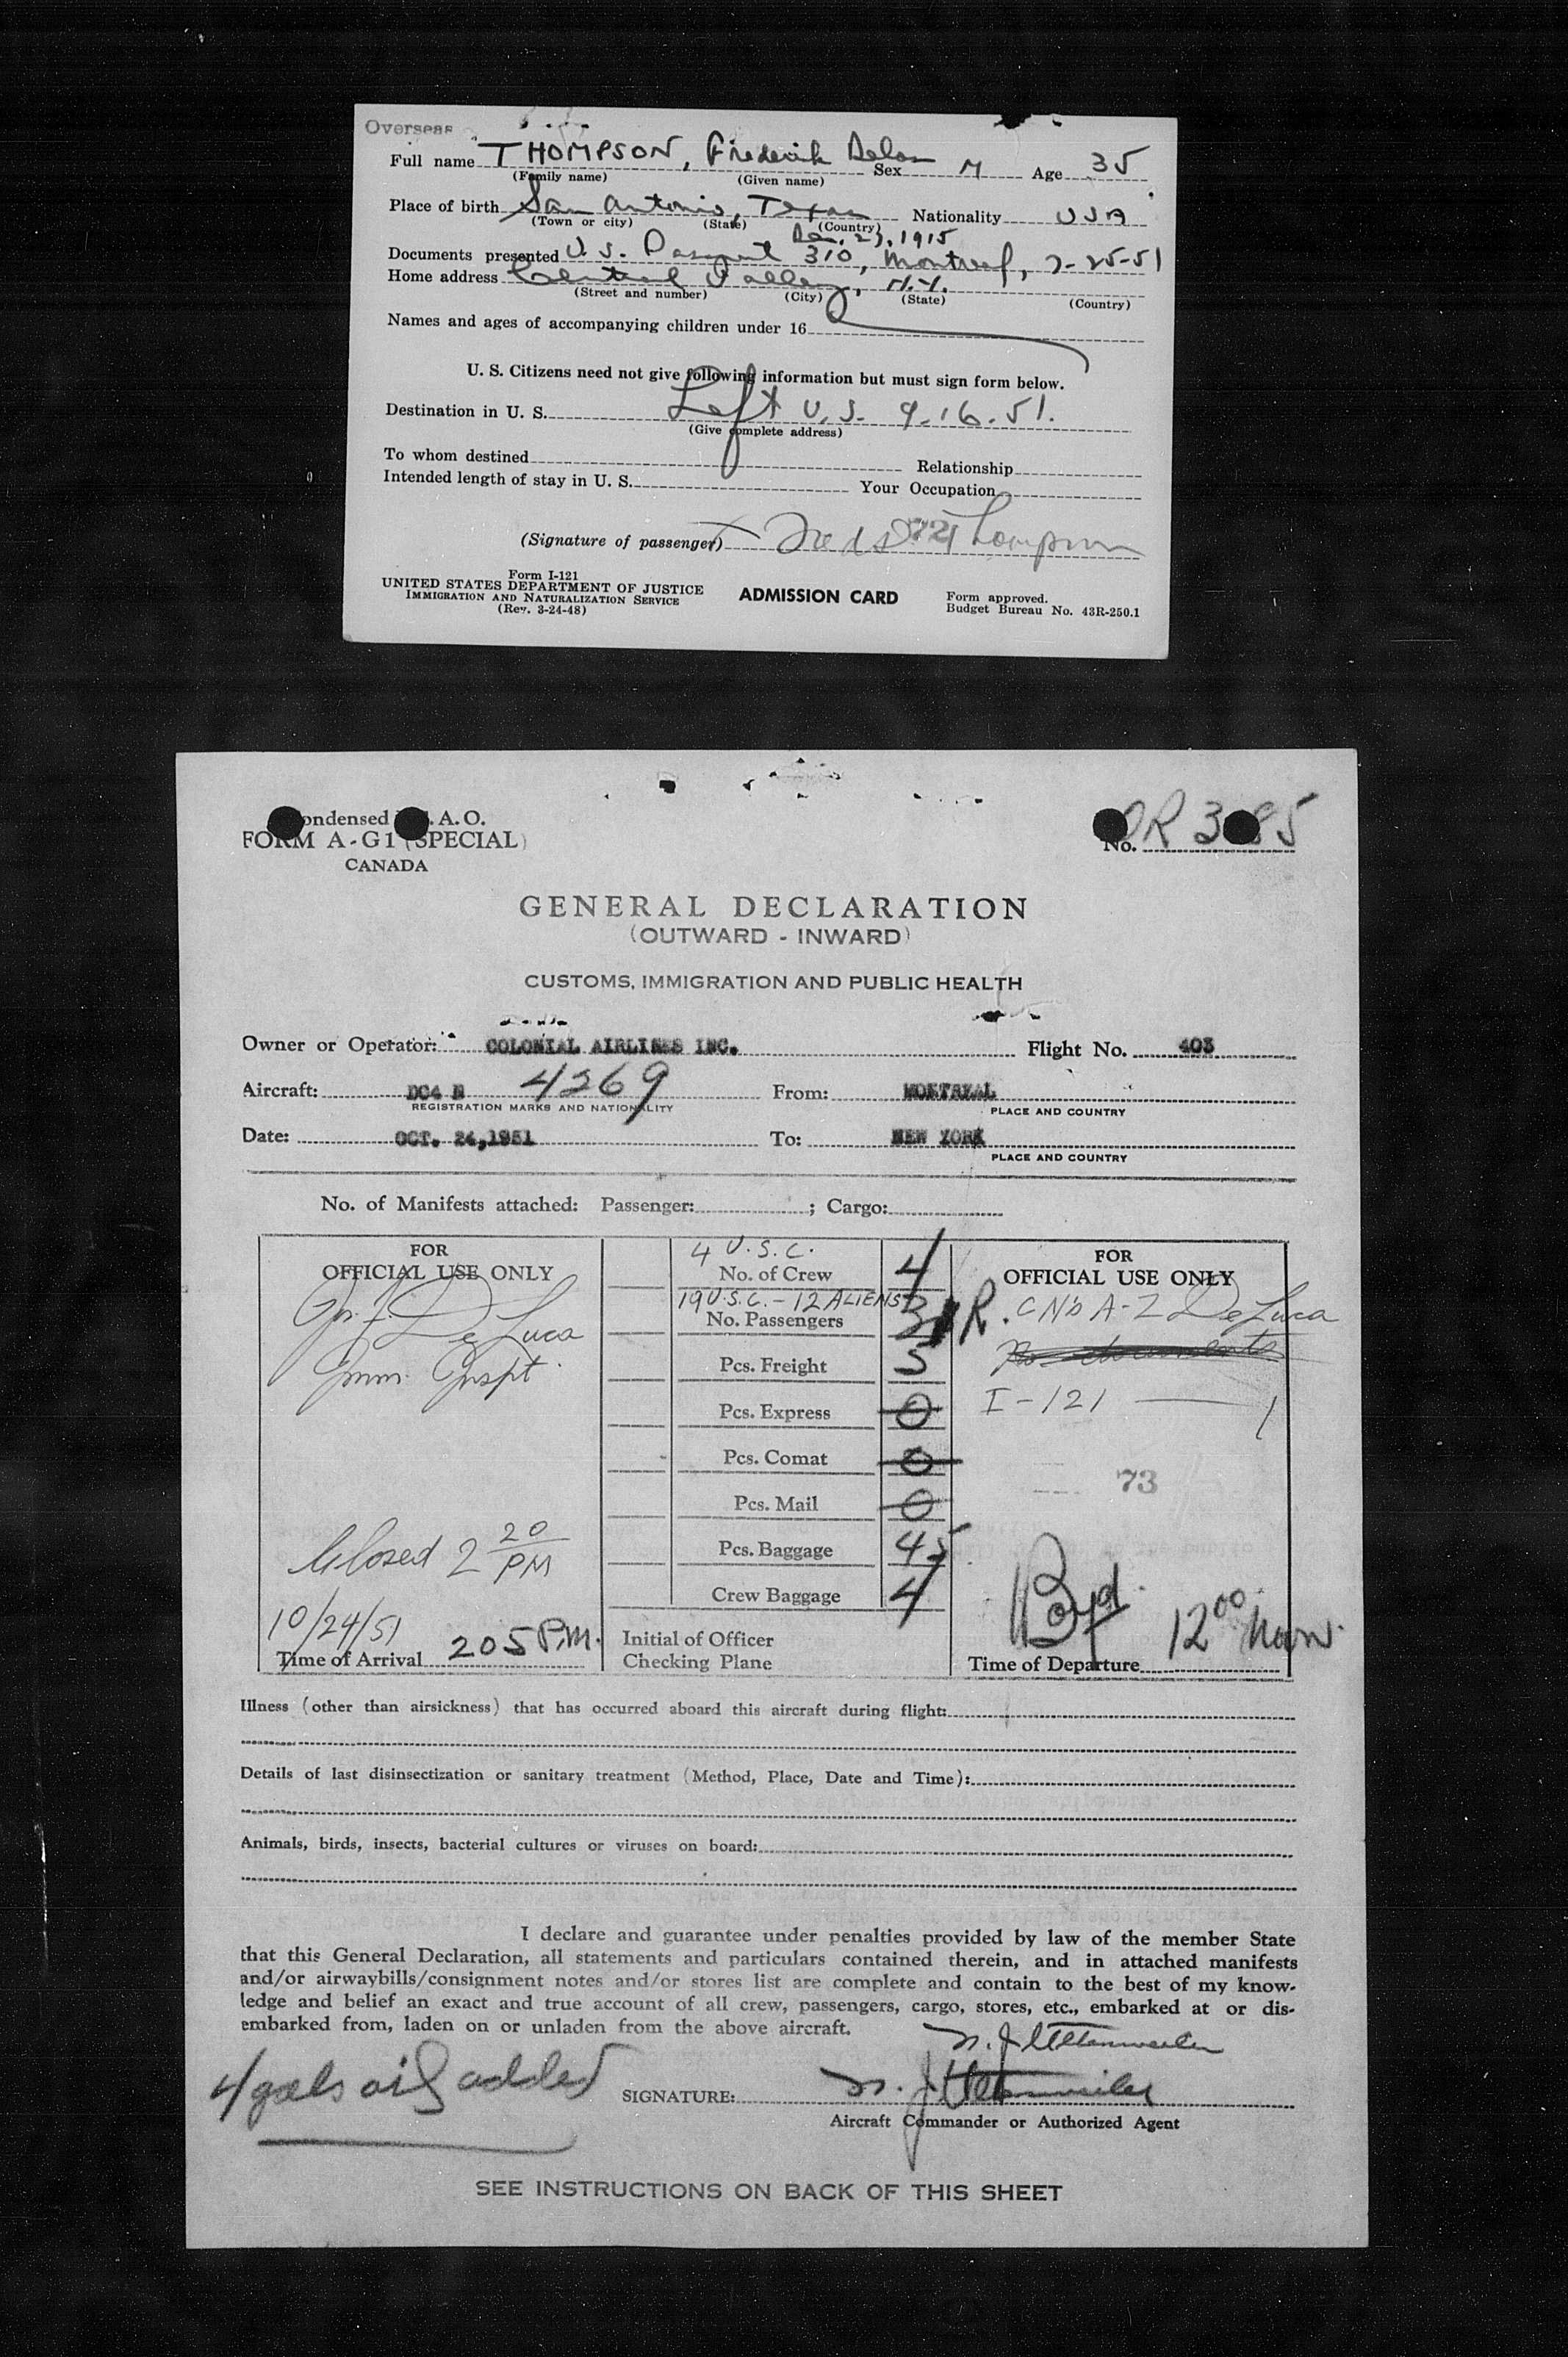 Overseas
Full name THOMPSON, Frederick Delos Sex M Age 35
(Family name) (Given name)
Place of birth San Antonio, Texas Nationality USA
(Town or city) (State) (Country)
Dec. 23, 1915
Documents presented U.S. Passport 310, Montreal, 7-25-51
Home address Central Valley, N.Y.
(Street and number) (City) (State) (Country)
Names and ages of accompanying children under 16
U. S. Citizens need not give following information but must sign form below.
Destination in U. S. Left U.S. 9-16-51.
(Give complete address)
To whom destined Relationship
Intended length of stay in U. S. Your Occupation
(Signature of passenger) Thompson
Form I-121
UNITED STATES DEPARTMENT OF JUSTICE
IMMIGRATION AND NATURALIZATION SERVICE
(Rev. 3-24-48)
ADMISSION CARD
Form approved.
Budget Bureau No. 43R-250.1
ondensed A. O.
FORM A-G1 (SPECIAL)
CANADA
No. R 3 85
GENERAL DECLARATION
(OUTWARD - INWARD)
CUSTOMS, IMMIGRATION AND PUBLIC HEALTH
Owner or Operator: COLONIAL AIRLINES INC. Flight No. 403
Aircraft: DC4 N 4269 From: MONTREAL
REGISTRATION MARKS AND NATIONALITY PLACE AND COUNTRY
Date: OCT. 24,1951 To: NEW YORK
PLACE AND COUNTRY
No. of Manifests attached: Passenger: ; Cargo:
FOR
OFFICIAL USE ONLY
De Luca
Imm. Inspt.
Closed 2 20 PM
10/24/51
Time of Arrival 205 P.M.
4 U.S.C.
No. of Crew 4
19 U.S.C. - 12 ALIENS
No. Passengers 31
Pcs. Freight 5
Pcs. Express 0
Pcs. Comat 0
Pcs. Mail 0
Pcs. Baggage 45
Crew Baggage 4
Initial of Officer
Checking Plane
FOR
OFFICIAL USE ONLY
R. C Nb A-Z De Luca
No documents
I-121 — 1
73
Boyd. 12 00 Noon.
Time of Departure
Illness (other than airsickness) that has occurred aboard this aircraft during flight:
Details of last disinsectization or sanitary treatment (Method, Place, Date and Time):
Animals, birds, insects, bacterial cultures or viruses on board:
I declare and guarantee under penalties provided by law of the member State
that this General Declaration, all statements and particulars contained therein, and in attached manifests
and/or airwaybills/consignment notes and/or stores list are complete and contain to the best of my know-
ledge and belief an exact and true account of all crew, passengers, cargo, stores, etc., embarked at or dis-
embarked from, laden on or unladen from the above aircraft.
4 gals oil added
SIGNATURE:
Aircraft Commander or Authorized Agent
SEE INSTRUCTIONS ON BACK OF THIS SHEET